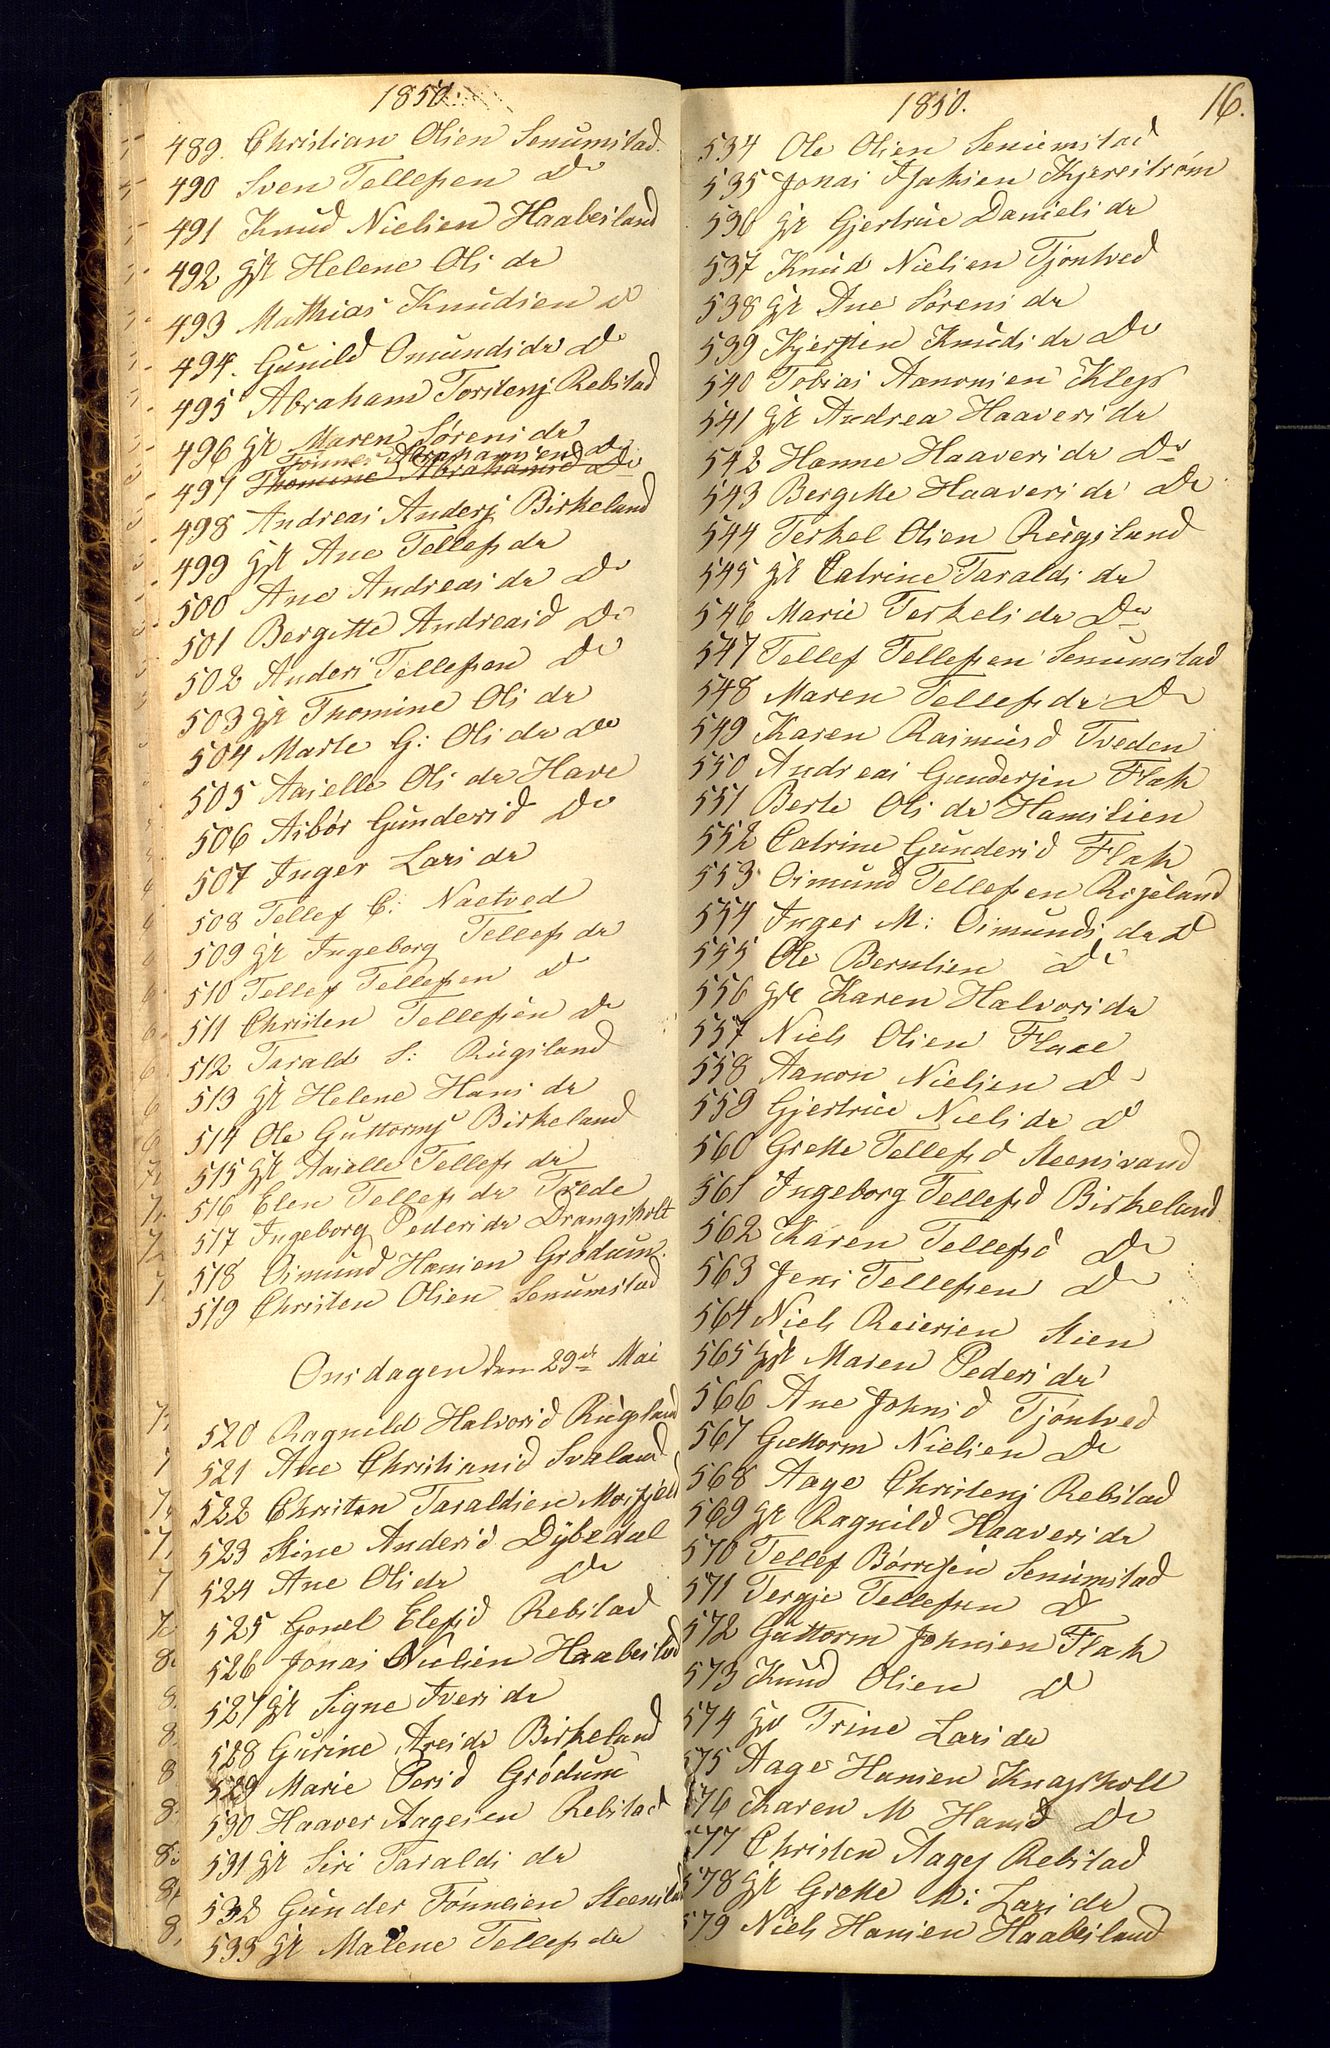 1850.
489. Christian Olsen Senumstad.
490 Sven Tellefsen Do
491 Knud Nielsen Haabesland
492 gft Helene Olsdr
493 Mathias Knudsen do
494. Gunild Omundsdr Do
495 Abraham Torstensj Rebstad
496 gft Maren Sørensdr
Tønnes Abrahamsen Do
497 Thomine Abrahamsd Do
498 Andreas Andersj Birkeland
499 gft Ane Tellefsdr
500 Ane Andreasdr Do
501 Bergitte Andreasd Do
502 Anders Tellefsen Do
503 gft Thomine Olsdr
504 Marte G: Olsdr Do
505 Asielle Olsdr Have
506 Asbør Gundersd Do
507 Inger Larsdr
508 Tellef C: Naetved
509 gft Ingeborg Tellefsdr
510 Tellef Tellefsen Do
511 Christen Tellefsen Do
512 Tarald S: Rugsland
513 gft Helene Hansdr
514 Ole Guttormsj Birkeland
515 gft Asielle Tellefsdr
516 Elen Tellefsdr Tvede
517 Ingeborg Pedersdr Drangsholt
518 Osmund Hansen Grødum.
519 Christen Olsen Senumstad
Onsdagen den 29de Mai
520 Ragnild Halvorsd Rugsland
521 Ane Christiansd Svaland
522 Christen Taraldsen Mosfjeld
523 Stine Andersd Dÿbedal
524 Ane Olsdr Do
525 Gonel Elefsd Rebstad
526 Jonas Nielsen Haabesland
527 gft Signe Iversdr
528 Gurine Aresdr Birkeland
529 Marie Persd Grødum
530 Haaver Aagesen Rebstad
531 gft Siri Taraldsdr
532 Gunder Tønnesen
533 gft Malene Tellefsdr
1850.
16.
534 Ole Olsen Senumstad
535 Jonas Isaksen Kjerestrøm
536 gft Gjertrue Danielsdr
537 Knud Nielsen Tjøntved
538 gft Ane Sørensdr
539 Kjersten Knudsdr Do
540 Tobias Aanonsen Klep
541 gft Andrea Haaversdr
542 Hanne Haaversdr Do
543 Bergitte Haaversdr Do
544 Terkel Olsen Rugsland
545 gft Catrine Taraldsdr
546 Marie Terkelsdr Do
547 Tellef Tellefsen Senumstad
548 Maren Tellefsdr Do
549 Karen Rasmusd Tveden
550 Andreas Gundersen Flak
551 Berte Olsdr Hamilien
552 Catrine Gundersd Flak
553 Osmund Tellefsen Rugsland
554 Inger M: Osmundsdr Do
555 Ole Berntsen Do
556 gft Karen Halvorsdr
557 Niels Olsen Flaae
558 Aanon Nielsen Do
559 Gjertrue Nielsdr Do
560 Grette Tellefsd Steensvand
561 Ingeborg Tellefsd Birkeland
562 Karen Tellefsd Do
563 Jens Tellefsen Do
564 Niels Reiersen Stien
565 gft Maren Pedersdr
566 Ane Johnsd Tjøntved
567 Guttorm Nielsen Do
568 Aage Christensj Rebstad
569 gft Ragnild Haaversdr
570 Tellef Børresen Senumstad
571 Terje Tellefsen Do
572 Guttorm Johnsen Flak
573 Knud Olsen Do
574 gft Trine Larsdr
575 Aage Hansen Knapsholt
576 Karen M Hansd Do
577 Christen Aagesj Rebstad
578 gft Grette M: Larsdr
579 Niels Hansen Haabesland